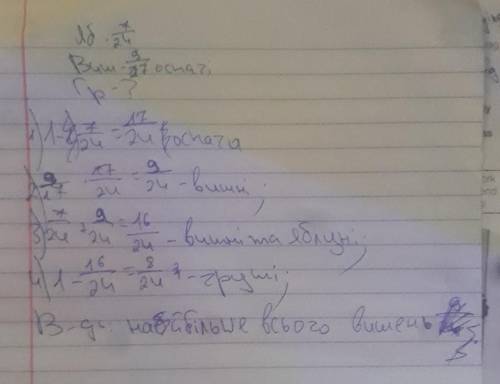 Яб - 7/24
Виш - 9/17 остач.
Гр - ?
1) 1 - 7/24 = 17/24 - остача
2) 9/17 · 17/24 = 9/24 - вишні;
3) 7/24 + 9/24 = 16/24 - вишні та яблуні;
4) 1 - 16/24 = 8/24 - груші;
В-дь: найбільше всього вишень